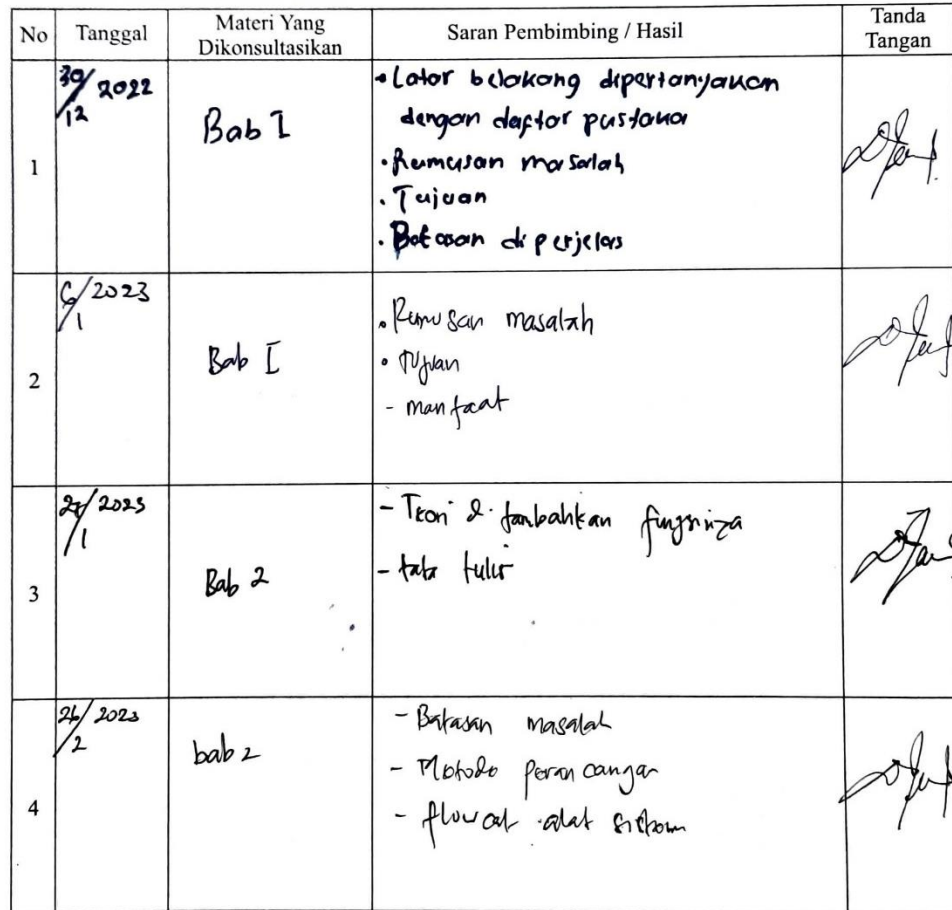 No Tanggal Materi Yang Dikonsultasikan Saran Pembimbing / Hasil Tanda Tangan
1
30/12 2022
Bab I
• Latar belakang dipertanyakan
dengan daftar pustaka
• Rumusan masalah
• Tujuan
• Batasan diperjelas
2
6/1 2023
Bab I
• Rumusan masalah
• Tujuan
- manfaat
3
/1 2023
Bab 2
- Teori ditambahkan fungsinya
- tata tulis
4
26/2 2023
bab 2
- Batasan masalah
- Metode perancangan
- alat sistem